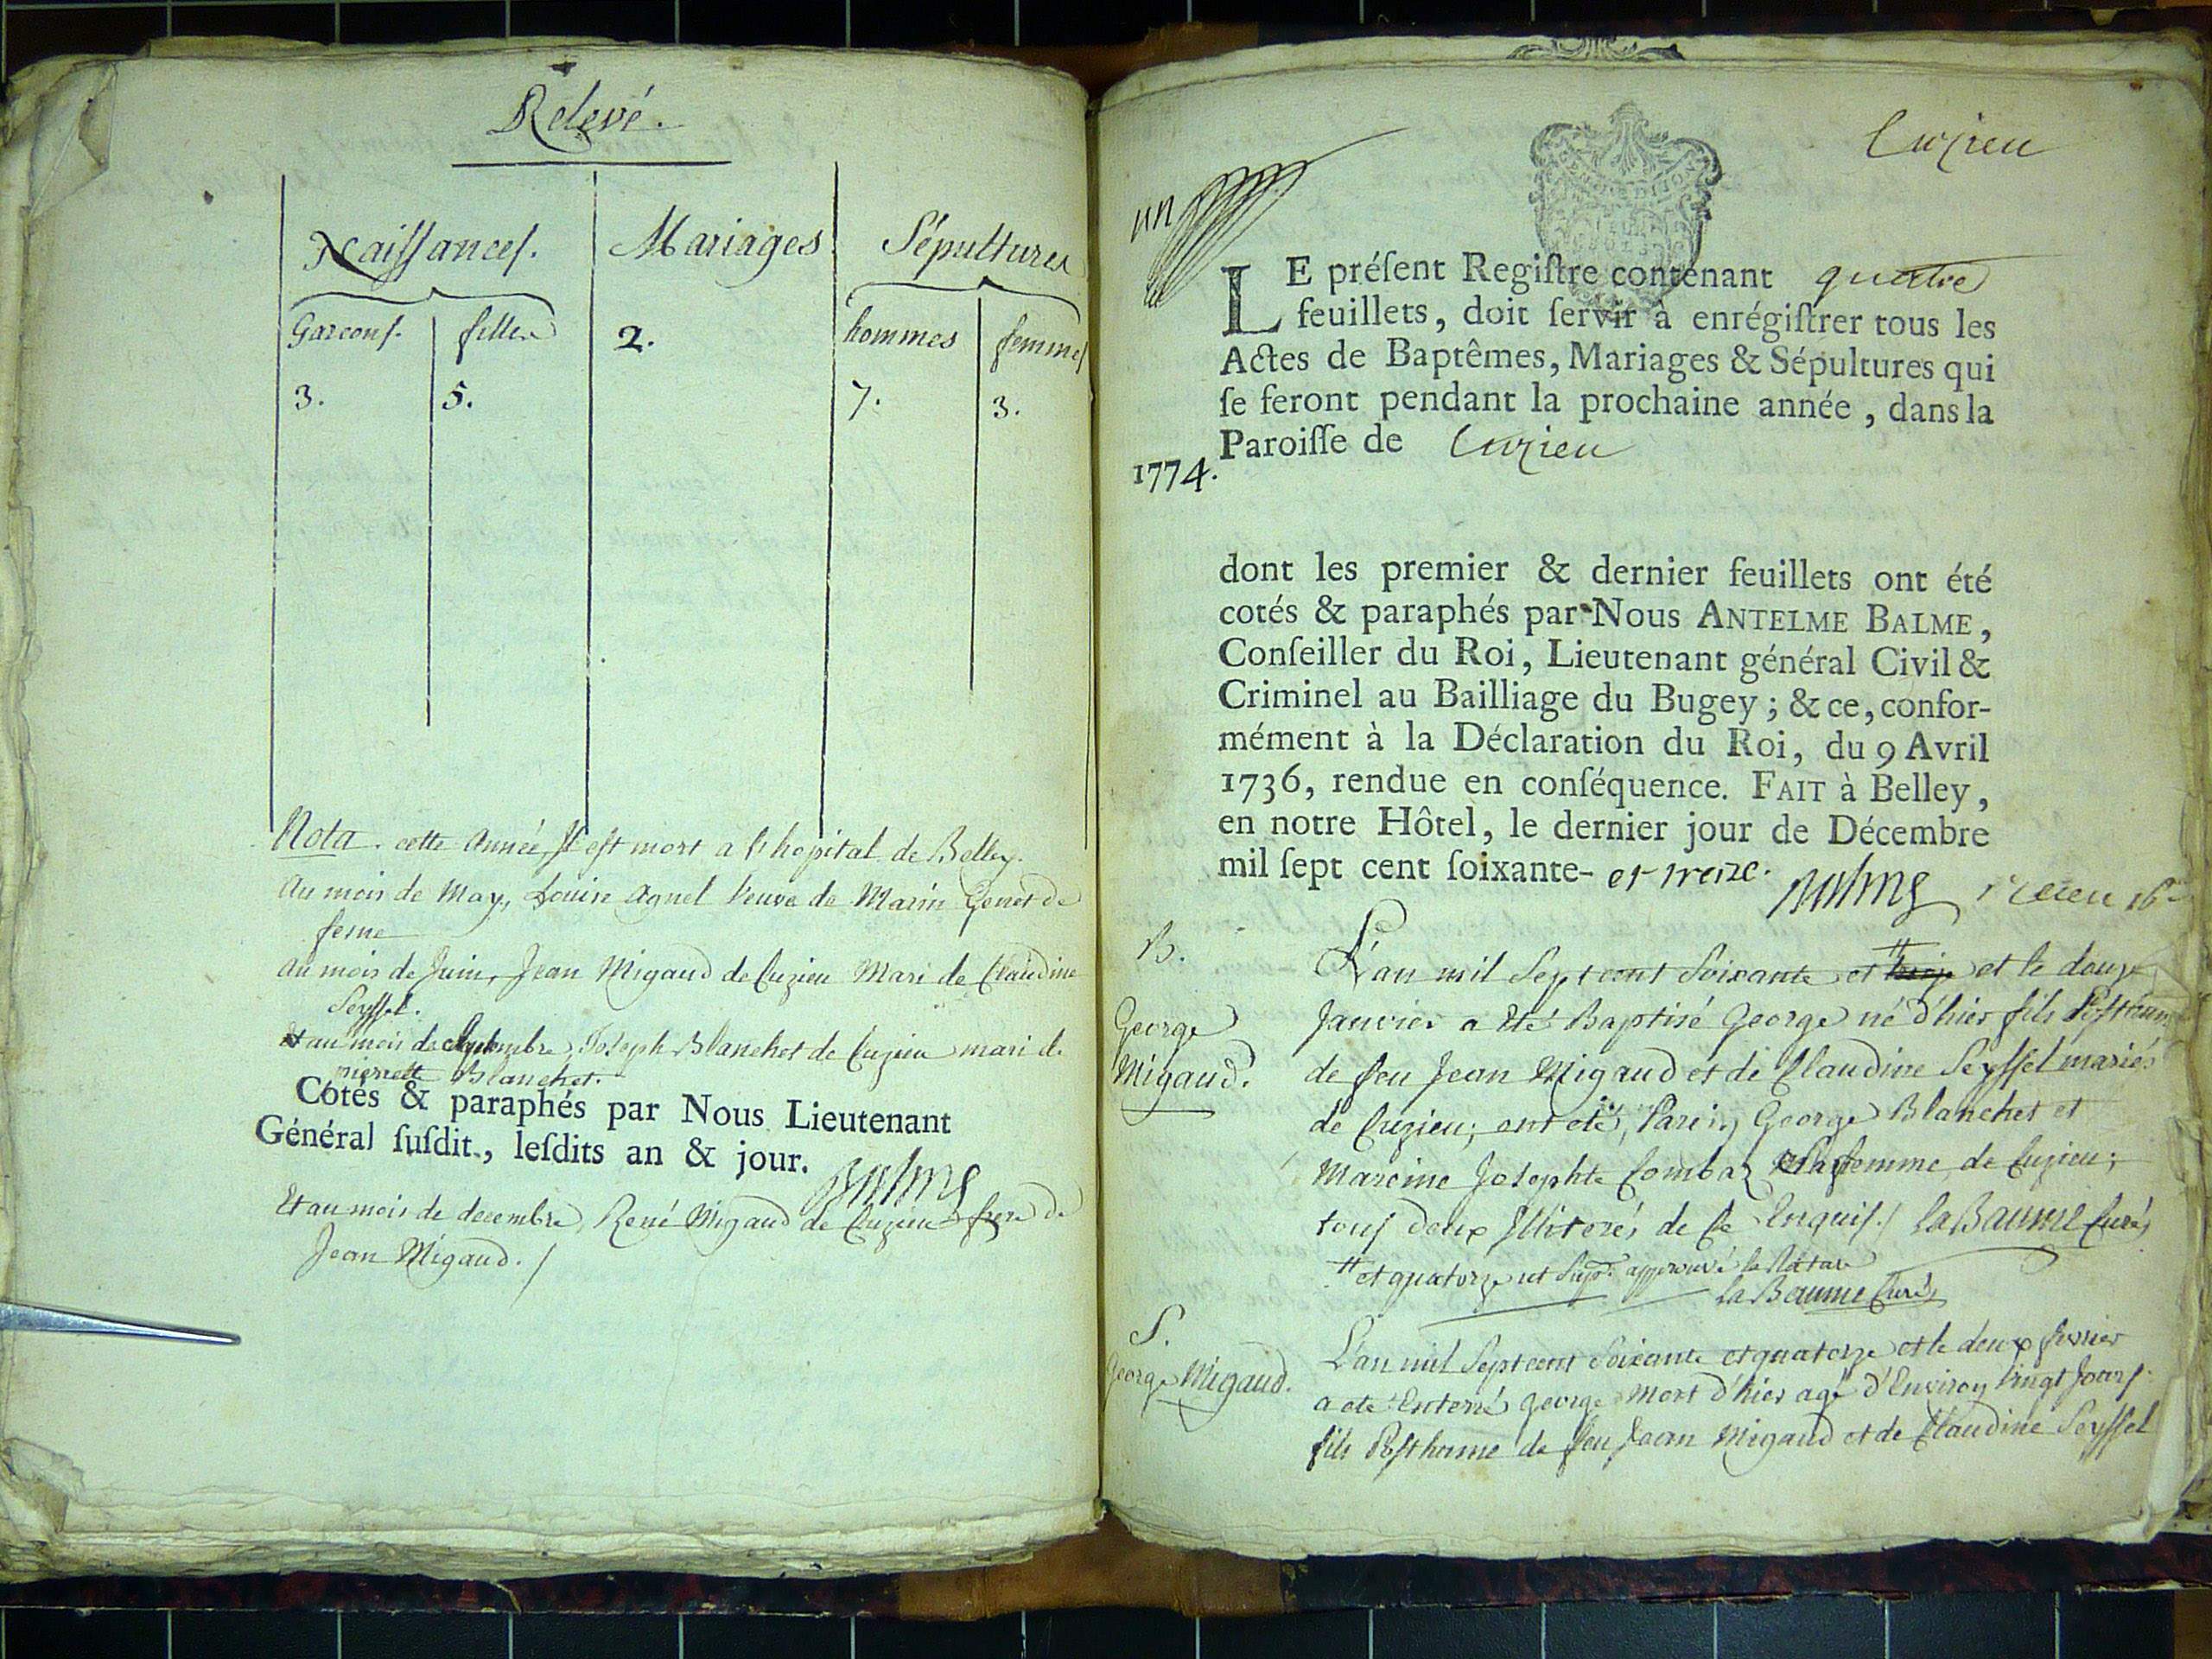 Relevé.
Naissances. Mariages Sépultures
Garcons. filles 2. hommes femmes
3. 5. 7. 3.
Nota. cette Année, Il est mort a l'hopital de Belley.
Au mois de May, Louise Agnel Veuve de Marin Genet de
ferne
au mois de Juin, Jean Migaud de Cuzieu Mari de Claudine
Seyssel.
Et au mois de septembre, Joseph Blanchet de Cuzieu mari de
pierrette Blanchet.
Cotés & paraphés par Nous Lieutenant
Général susdit, lesdits an & jour.
Balme
Et au mois de decembre, René Migaud de Cuzieu frere de
Jean Migaud./
Cuzieu
un
LE présent Registre contenant quatre
feuillets, doit servir à enrégistrer tous les
Actes de Baptêmes, Mariages & Sépultures qui
se feront pendant la prochaine année, dans la
Paroisse de Cuzieu
1774.
dont les premier & dernier feuillets ont été
cotés & paraphés par Nous ANTELME BALME,
Conseiller du Roi, Lieutenant général Civil &
Criminel au Bailliage du Bugey; & ce, confor-
mément à la Déclaration du Roi, du 9 Avril
1736, rendue en conséquence. FAIT à Belley,
en notre Hôtel, le dernier jour de Décembre
mil sept cent soixante- et treize.
Balme
B. L'an mil Sept cent Soixante et treize et le douze
George Janvier a Eté Baptisé George né d'hier fils Posthume
Migaud. de feu Jean Migaud et de Claudine Seyssel mariés
de Cuzieu; ont eté, Parein George Blanchet et
Mareine Josephte Combaz sa femme, de Cuzieu;
tous deux Illiterés de ce Enquis./ La Baume Curé,
et quatorze ut supr. approuvé la Rature
La Baume Curé,
S. L'an mil Sept cent Soixante et quatorze et le deux fevrier
George Migaud. a eté Enterré George mort d'hier agé d'Environ Vingt Jours.
fils Posthume de feu Jean Migaud et de Claudine Seyssel